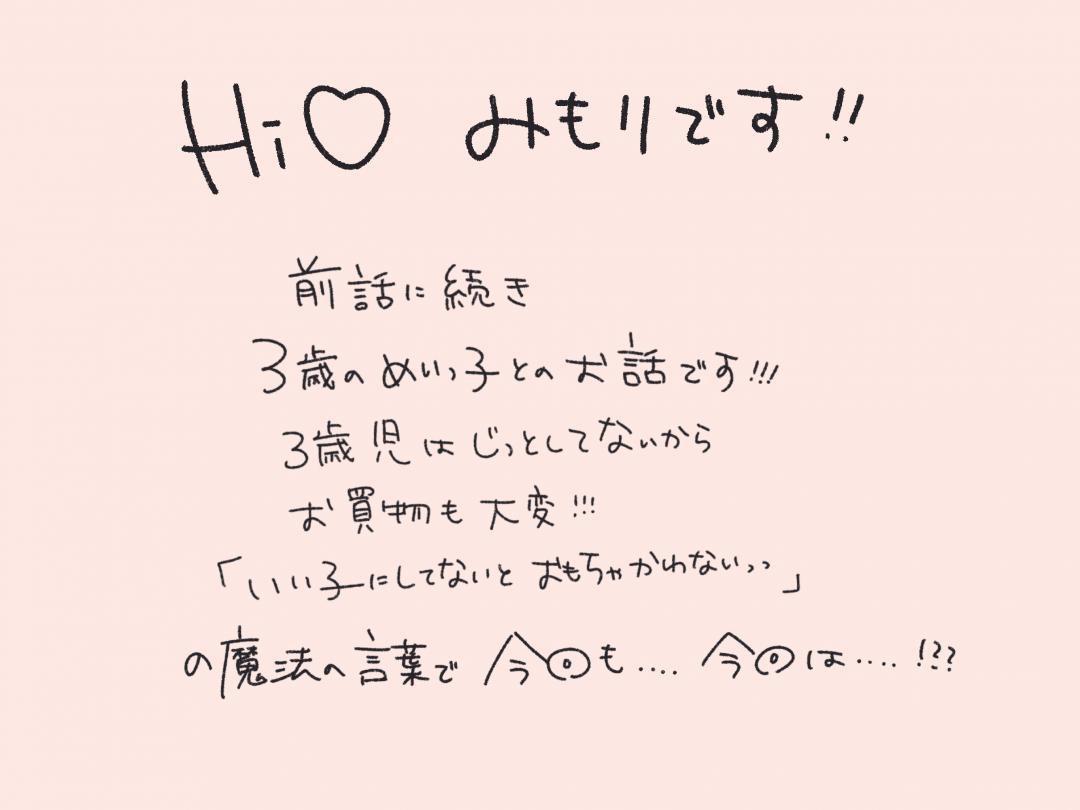 Hi♡ みもりです!!
前話に続き
3歳のめいっ子とのお話です!!!
3歳児はじっとしてないから
お買物も大変!!!
「いい子にしてないと おもちゃかわないっっ」
の魔法の言葉で 今回も‥‥ 今回は‥‥!??